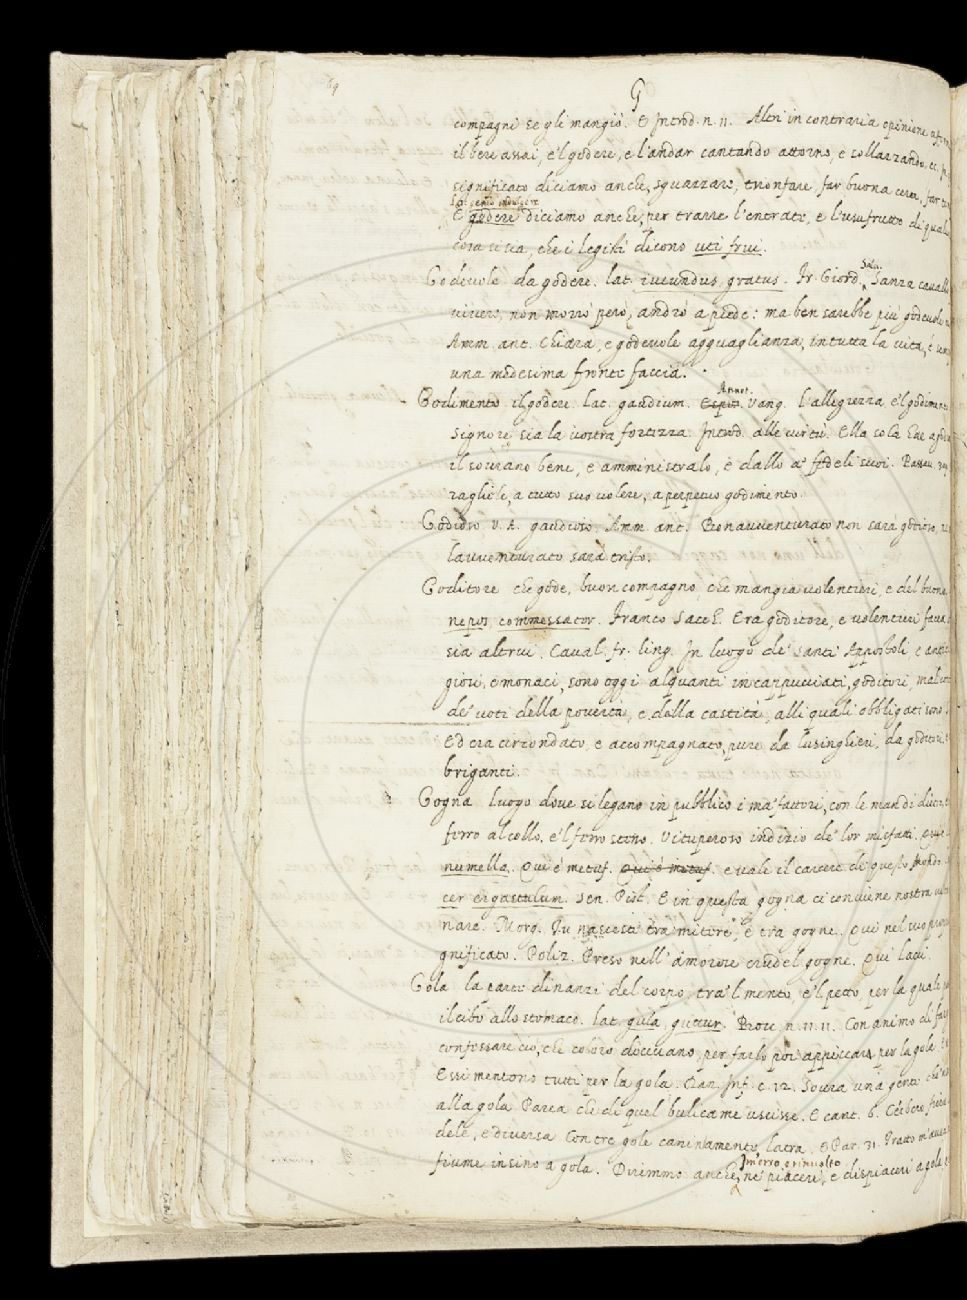 G
compagni se gli mangiò. E Introd. n. 11. Altri in contraria opinione
il bere assai, e 'l godere, e l'andar cantando attorno, e sollazzando, ec.
significato diciamo anche, squazzare, trionfare, far buona cera, far
lat. genio indulgere
E godere diciamo anche, per trarre l'entrate, e l'usufrutto di qual
cosa si sia, che i legisti dicono uti frui.
Godevole da godere. lat. iucundus, gratus. Fr. Giord. Salu. Sanza cavallo
vivere, non morrò però, andrò a piede: ma ben sarebbe più godevole
Amm. ant. Chiara, e godevole agguaglianza, in tutta la vita, è
una medesima fronte faccia.
Godimento il godere. lat. gaudium. Espos. Annot. Vang. l'allegrezza, e 'l godimento
Signore, sia la vostra fortezza. Introd. alle virtù. Ella sola
il sovrano bene, e amministralo, e dallo a' fedeli suoi. Passav.
ragliele, a tutto suo volere, a perpetuo godimento.
Godioso V. A. gaudioso. Amm. ant. Bonavventurato non sarà godioso,
lavventurato sarà tristo.
Goditore che gode, buon compagno che mangia volentieri, e del buono.
nepos, commessator. Franco Sacch. Era goditore, e volentieri
sia altrui. Caval. fr. ling. In luogo de' santi Appostoli e
giosi, e monaci, sono oggi alquanti incappucciati, goditori,
de' voti della povertà, e della castità, alli quali obbligati sono.
Ed era circondato, e accompagnato, pure da lusinghieri, da goditori,
briganti.
Gogna luogo dove si legano in pubblico i ma'fattori, con le mani dietro,
ferro al collo. e 'l ferro stesso. Vituperoso indizio de' lor misfatti.
numella. Qui è metaf. Qui è metaf. e vale il carcere di questo mondo
cer ergastulum. Sen. Pist. E in questa gogna ci conviene nostra
nare. Morg. Tu nascesti tra mitere, e tra gogne. Qui nel suo
gnificato. Poliz. Preso nell'amorose crudel gogne. Qui lacci.
Gola la parte dinanzi del corpo, tra 'l mento, e 'l petto, per la quale
il cibo allo stomaco. lat. gula, guttur. Bocc. n. 11. 11. Con animo di
confessare ciò, che coloro dicevano, per farlo poi appiccare per la gola.
Essi mentono tutti per la gola. Dan. Inf. c. 12. Sovra una gente
alla gola Parea che di quel bulicame uscisse. E cant. 6. Cerbero
dele, e diversa Con tre gole caninamente latra. E Par. 31. Tratto m'avea
fiume insino a gola. Diremmo anche, Immerso, e rinvolto ne' piaceri, e dispiaceri a gola